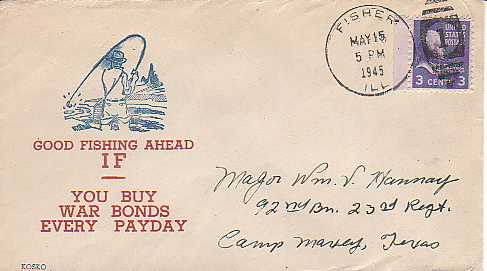 FISHER
MAY 15
5 PM
1945
ILL
UNITED
STATES
POSTAGE
3 CENTS 3
GOOD FISHING AHEAD
IF
YOU BUY
WAR BONDS
EVERY PAYDAY
Major Wm. V. Hannay
92nd Bn. 23rd Regt.
Camp Maxey, Texas
KOSKO